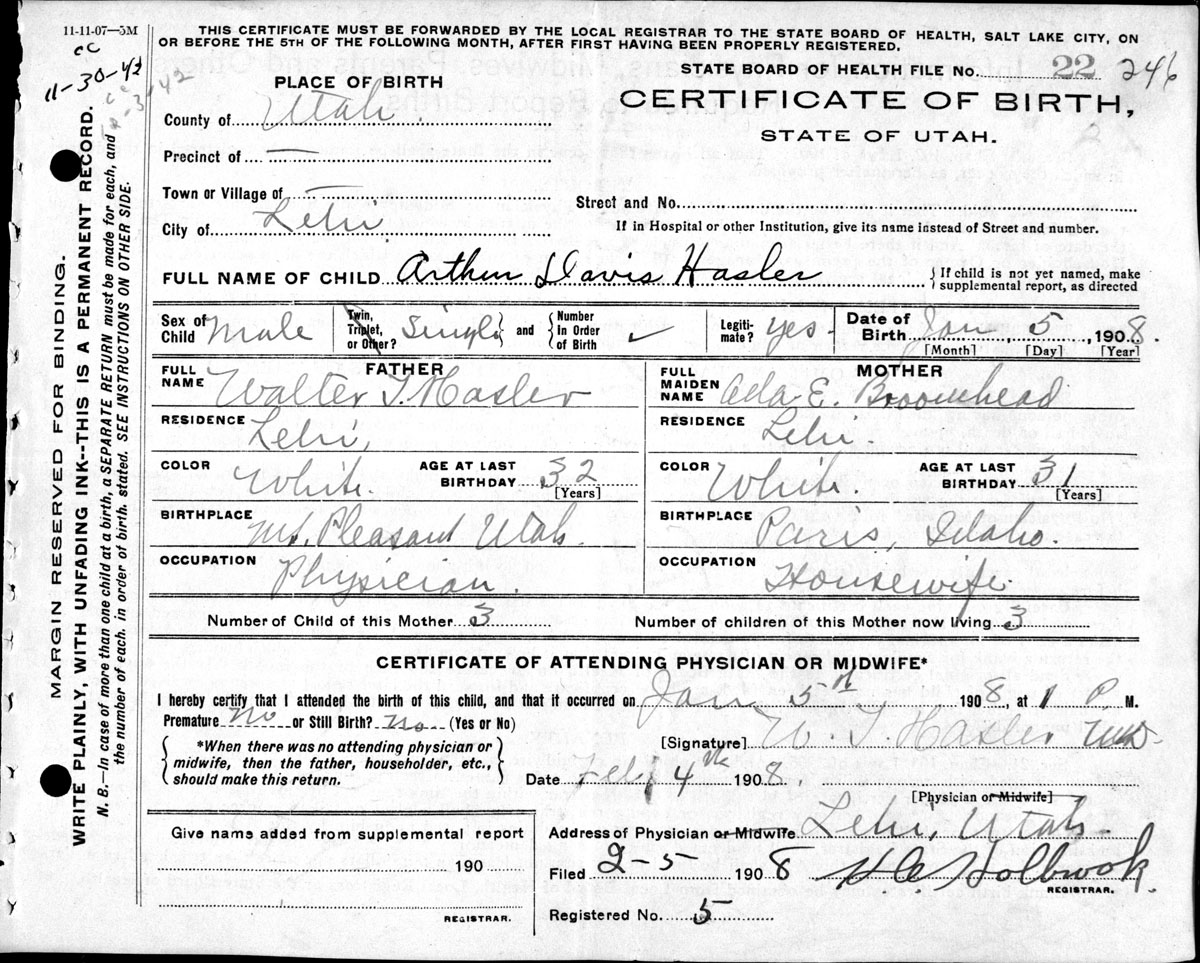 11-11-07—5M
THIS CERTIFICATE MUST BE FORWARDED BY THE LOCAL REGISTRAR TO THE STATE BOARD OF HEALTH, SALT LAKE CITY, ON
OR BEFORE THE 5TH OF THE FOLLOWING MONTH, AFTER FIRST HAVING BEEN PROPERLY REGISTERED.
cc
11-30-42
STATE BOARD OF HEALTH FILE No. 22 246
PLACE OF BIRTH
CERTIFICATE OF BIRTH,
STATE OF UTAH.
County of Utah
Precinct of —
Town or Village of —
Street and No.
City of Lehi
If in Hospital or other Institution, give its name instead of Street and number.
FULL NAME OF CHILD Arthur Davis Hasler { If child is not yet named, make
supplemental report, as directed
Sex of Child Male Twin, Triplet, or Other? Single } and { Number In Order of Birth ✓ Legiti- mate? yes - Date of Birth Jan, 5, 1908.
[Month] [Day] [Year]
FATHER MOTHER
FULL NAME Walter T. Hasler FULL MAIDEN NAME Ada E. Broomhead
RESIDENCE Lehi, RESIDENCE Lehi.
COLOR White. AGE AT LAST BIRTHDAY 32 [Years] COLOR White. AGE AT LAST BIRTHDAY 31 [Years]
BIRTHPLACE Mt. Pleasant Utah. BIRTHPLACE Paris, Idaho.
OCCUPATION Physician. OCCUPATION Housewife.
Number of Child of this Mother 3 Number of children of this Mother now living 3
CERTIFICATE OF ATTENDING PHYSICIAN OR MIDWIFE*
I hereby certify that I attended the birth of this child, and that it occurred on Jan 5th 1908, at 1 P. M.
Premature No or Still Birth? No (Yes or No)
{ *When there was no attending physician or
midwife, then the father, householder, etc.,
should make this return. }
[Signature] W. T. Hasler MD
Date Feb 4th 1908.
[Physician or Midwife]
Give name added from supplemental report
190
REGISTRAR.
Address of Physician or Midwife Lehi, Utah-
Filed 2-5 1908 H. C. Holbrook.
REGISTRAR.
Registered No. 5
MARGIN RESERVED FOR BINDING.
WRITE PLAINLY, WITH UNFADING INK--THIS IS A PERMANENT RECORD.
N. B.—In case of more than one child at a birth, a SEPARATE RETURN must be made for each, and
the number of each, in order of birth, stated. SEE INSTRUCTIONS ON OTHER SIDE.